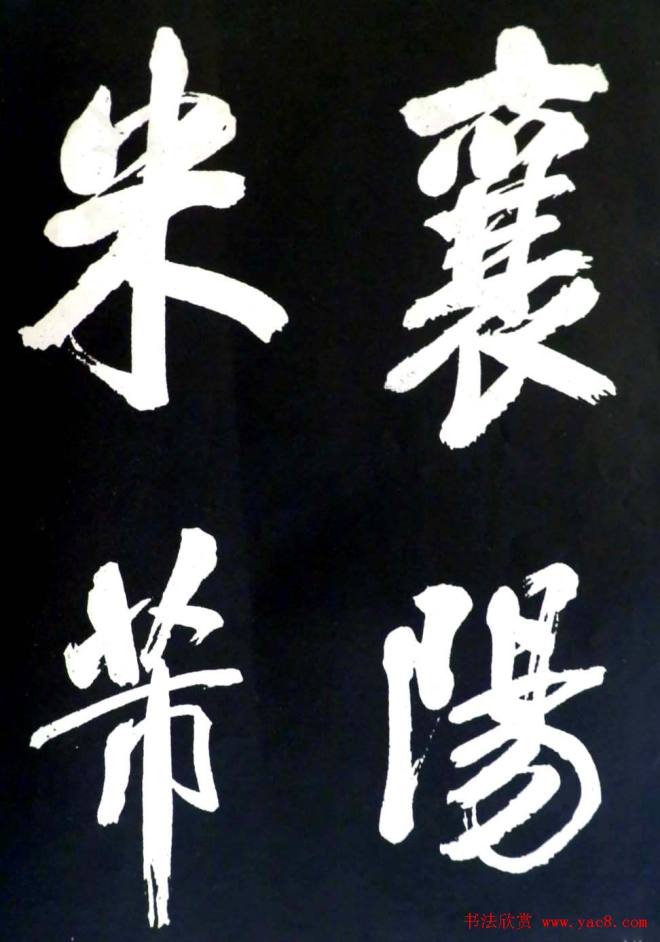 襄陽
米芾
书法欣赏 www.yac8.com